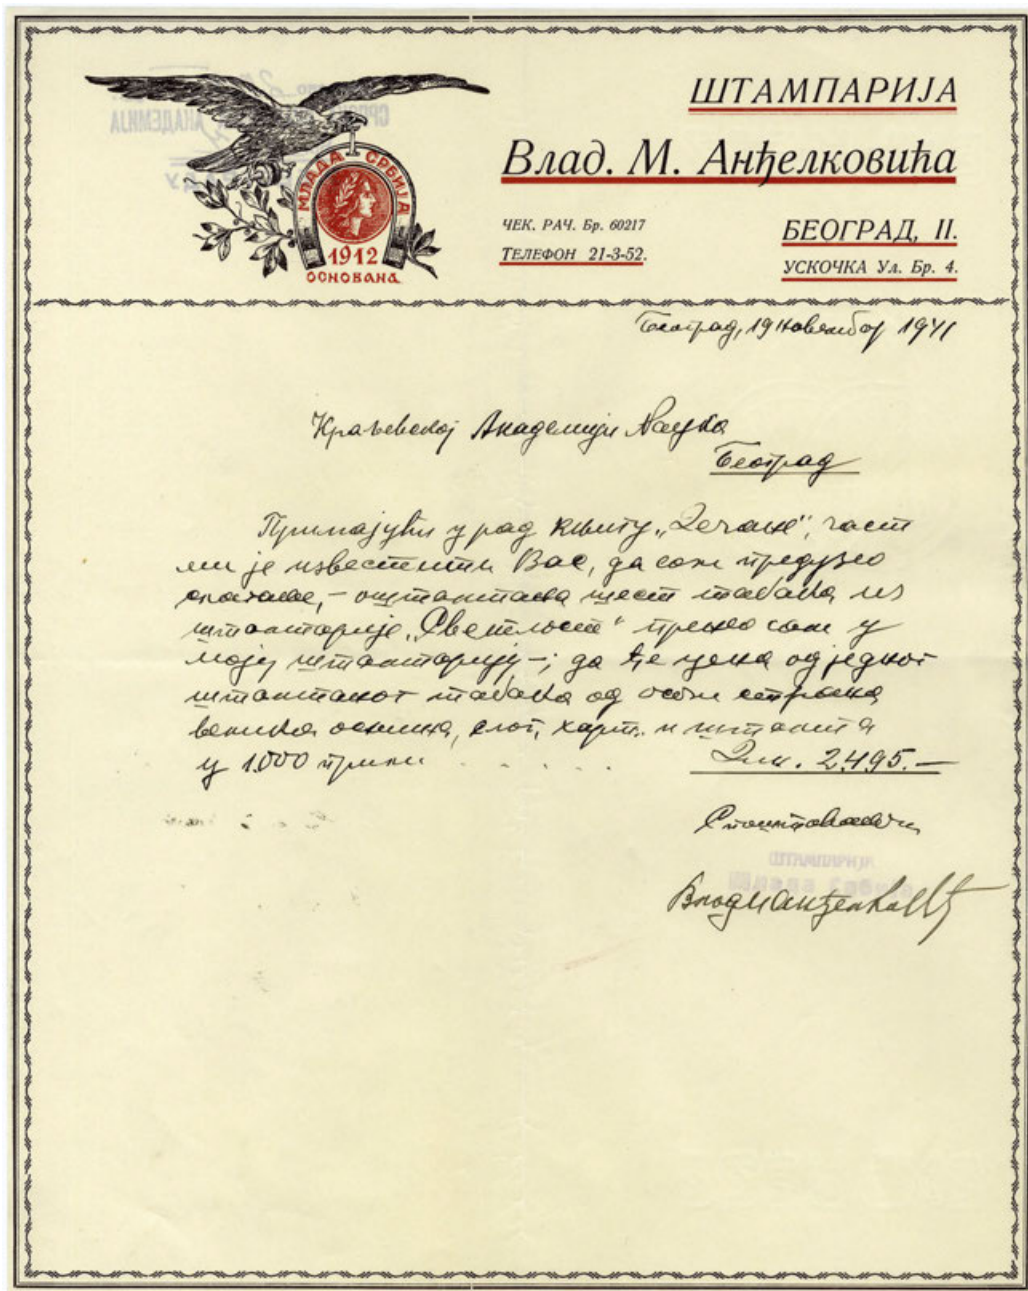 ШТАМПАРИЈА
Влад. М. Анђелковића
ЧЕК. РАЧ. Бр. 60217
ТЕЛЕФОН 21-3-52.
БЕОГРАД, II.
УСКОЧКА Ул. Бр. 4.
МЛАДА СРБИЈА
1912
ОСНОВАНА
Београд, 19 новембар 1941
Краљевској Академији Наука
Београд
Примајући у рад књигу „Дечане“, част
ми је известити Вас, да сам предузео
кораке, – оштампана шест табака из
штампарије „Светлост“ пренео сам у
моју штампарију –; да ће цена од једног
штампаног табака од осам страна
велика осмина, слог, харт. и штампа
у 1.000 прим. . . . . Дин. 2.495.—
С поштовањем
ШТАМПАРИЈА
Млада Србија
Влад М Анђелковић